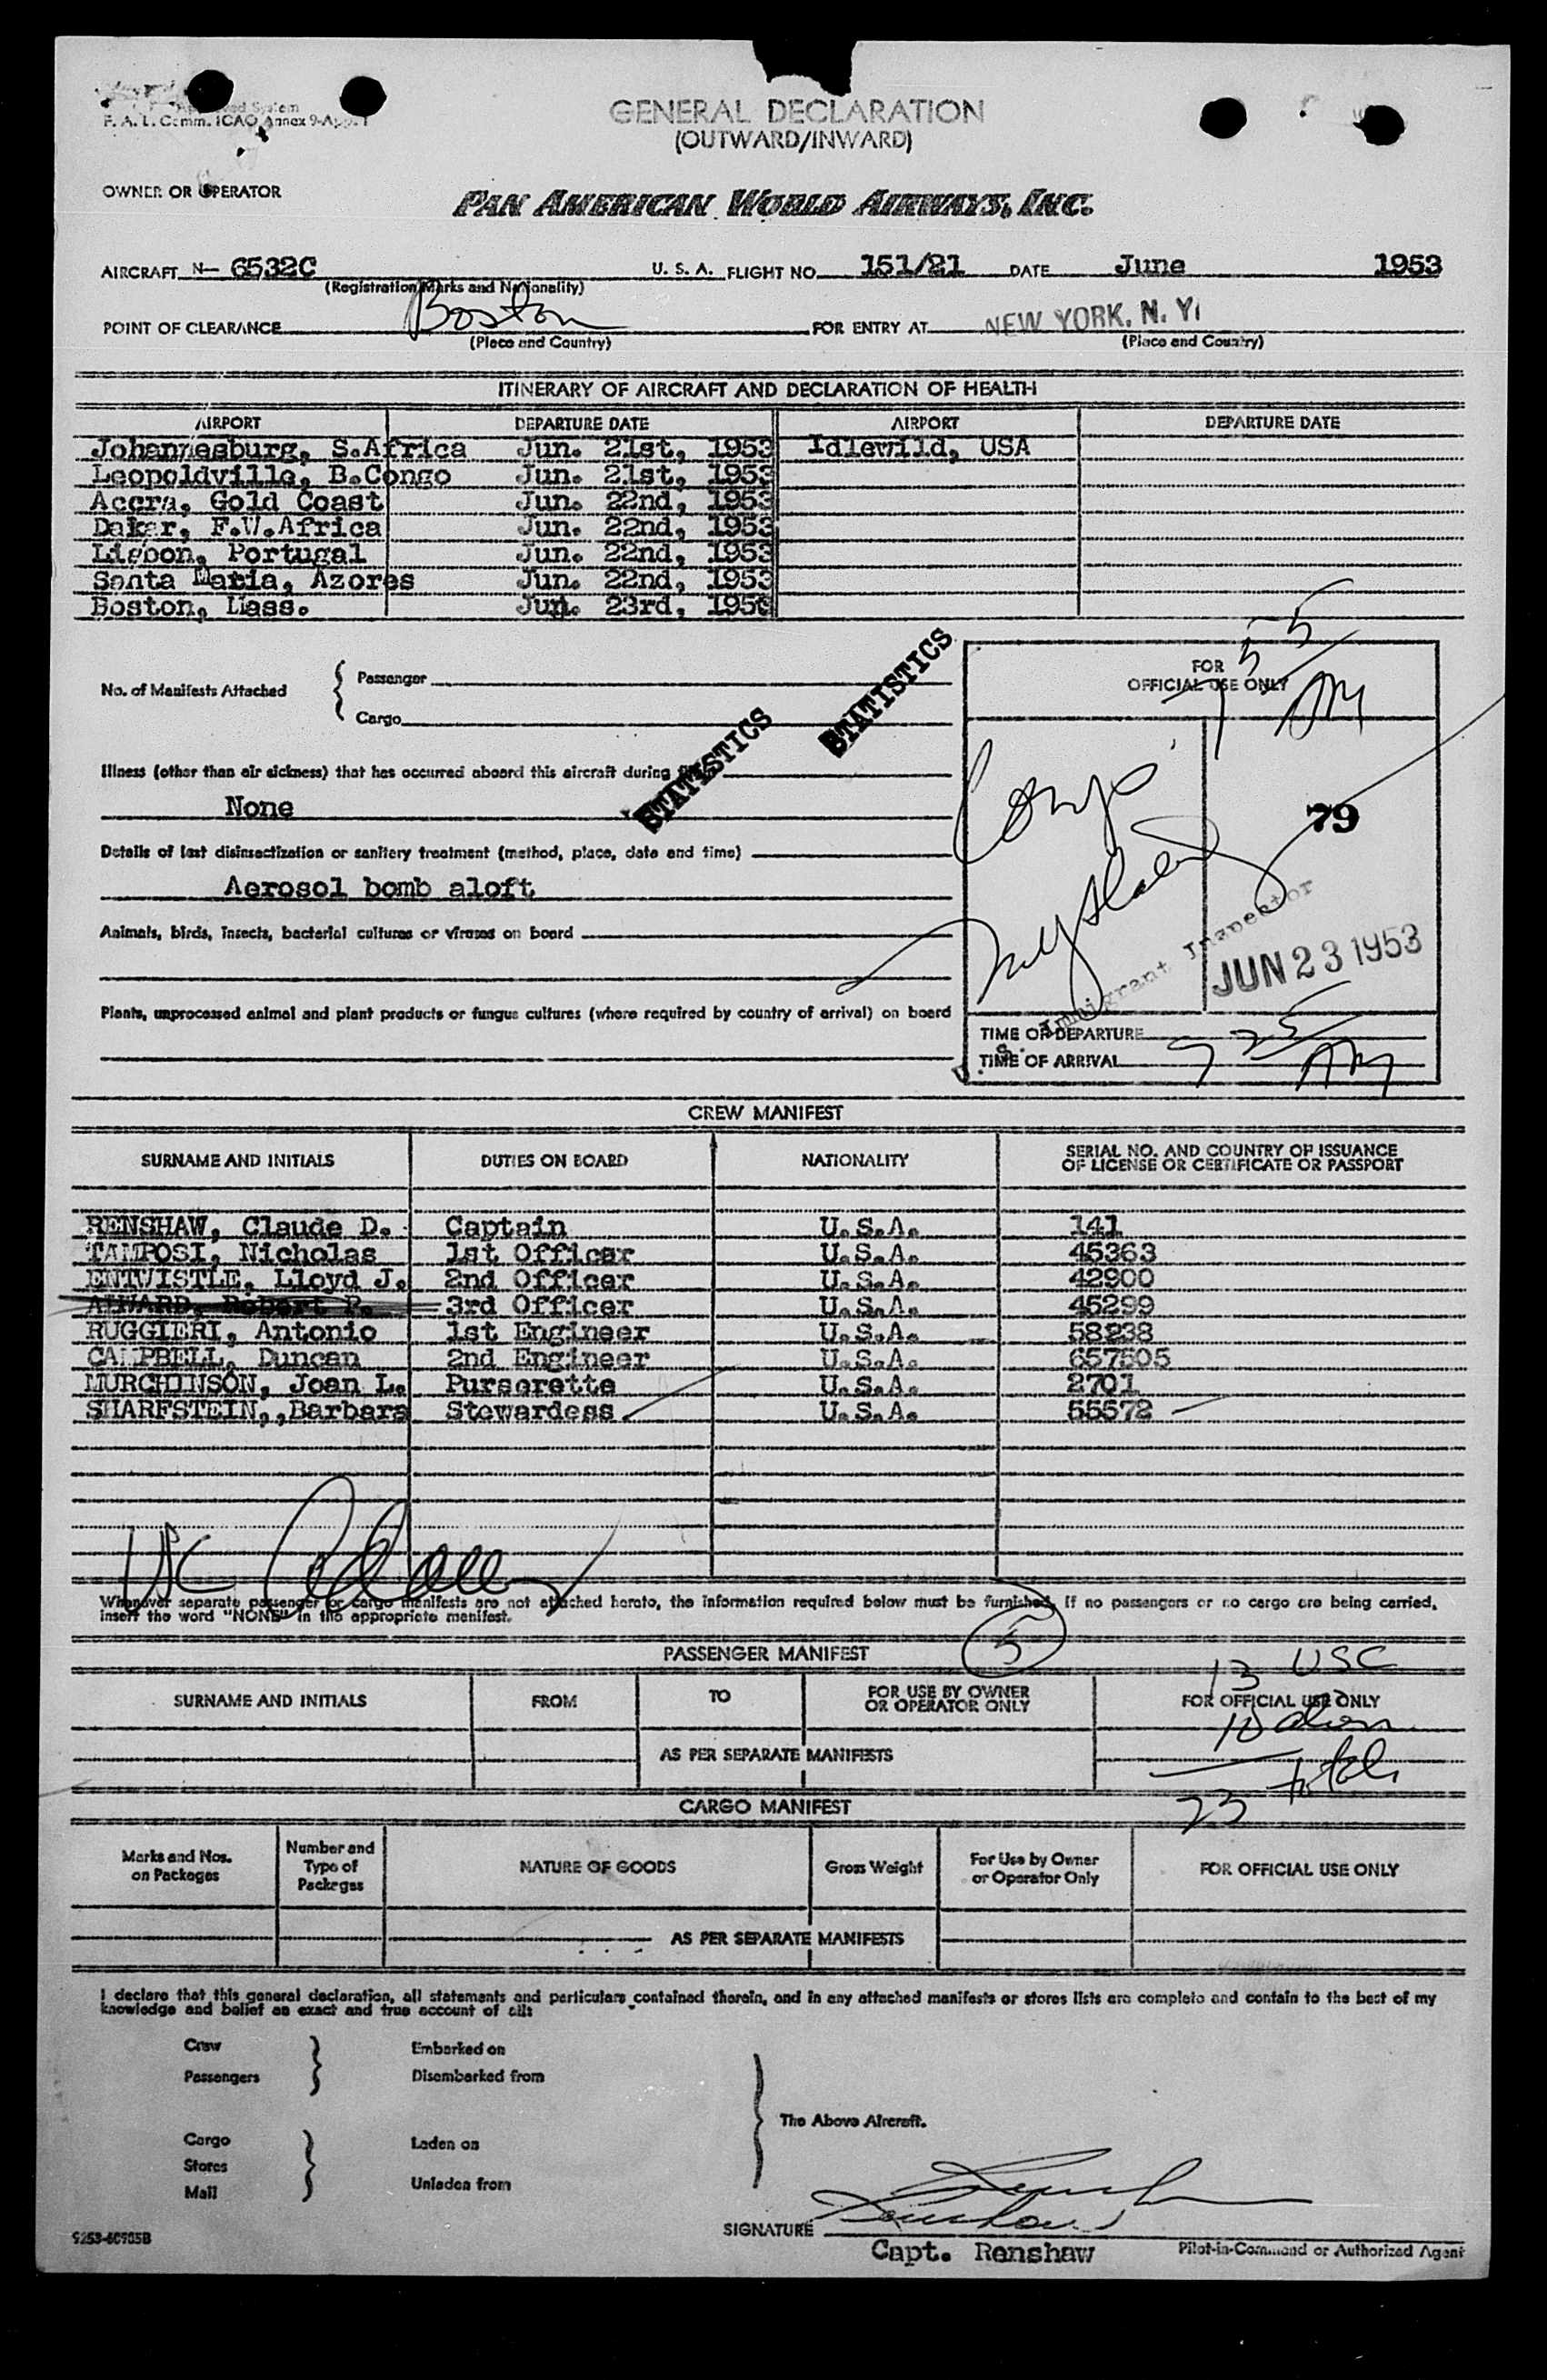 Approved System
F. A. L. Comm. ICAO Annex 9-App. 1
GENERAL DECLARATION
(OUTWARD/INWARD)
OWNER OR OPERATOR
PAN AMERICAN WORLD AIRWAYS, INC.
AIRCRAFT N- 6532C U. S. A. FLIGHT NO. 151/21 DATE June 1953
(Registration Marks and Nationality)
POINT OF CLEARANCE Boston FOR ENTRY AT NEW YORK, N. Y.
(Place and Country) (Place and Country)
ITINERARY OF AIRCRAFT AND DECLARATION OF HEALTH
AIRPORT DEPARTURE DATE AIRPORT DEPARTURE DATE
Johannesburg, S.Africa Jun. 21st, 1953 Idlewild, USA
Leopoldville, B.Congo Jun. 21st, 1953
Accra, Gold Coast Jun. 22nd, 1953
Dakar, F.W.Africa Jun. 22nd, 1953
Lisbon, Portugal Jun. 22nd, 1953
Santa Maria, Azores Jun. 22nd, 1953
Boston, Mass. Jun. 23rd, 195
No. of Manifests Attached { Passenger
Cargo
STATISTICS
STATISTICS
FOR
OFFICIAL USE ONLY
755
AM
Illness (other than air sickness) that has occurred aboard this aircraft during
None
79
Details of last disinsectization or sanitary treatment (method, place, date and time)
Aerosol bomb aloft
Animals, birds, insects, bacterial cultures or viruses on board
U. S. Immigrant Inspector
JUN 23 1953
Plants, unprocessed animal and plant products or fungus cultures (where required by country of arrival) on board
TIME OF DEPARTURE
TIME OF ARRIVAL 9 25 AM
CREW MANIFEST
SURNAME AND INITIALS DUTIES ON BOARD NATIONALITY SERIAL NO. AND COUNTRY OF ISSUANCE
OF LICENSE OR CERTIFICATE OR PASSPORT
RENSHAW, Claude D. Captain U.S.A. 141
TAMPOSI, Nicholas 1st Officer U.S.A. 45363
ENTWISTLE, Lloyd J. 2nd Officer U.S.A. 42900
Robert P. 3rd Officer U.S.A. 45299
RUGGIERI, Antonio 1st Engineer U.S.A. 58238
CAMPBELL, Duncan 2nd Engineer U.S.A. 657505
MURCHINSON, Joan L. Purserette U.S.A. 2701
SHARFSTEIN,,Barbara Stewardess U.S.A. 55572
USC
Whenever separate passenger or cargo manifests are not attached hereto, the information required below must be furnished. If no passengers or no cargo are being carried,
insert the word "NONE" in the appropriate manifest.
5
PASSENGER MANIFEST
13 USC
SURNAME AND INITIALS FROM TO FOR USE BY OWNER
OR OPERATOR ONLY FOR OFFICIAL USE ONLY
10 alien
AS PER SEPARATE MANIFESTS
23 total
CARGO MANIFEST
Marks and Nos.
on Packages Number and
Type of
Packages NATURE OF GOODS Gross Weight For Use by Owner
or Operator Only FOR OFFICIAL USE ONLY
AS PER SEPARATE MANIFESTS
I declare that this general declaration, all statements and particulars contained therein, and in any attached manifests or stores lists are complete and contain to the best of my
knowledge and belief an exact and true account of all:
Crew Embarked on
Passengers Disembarked from
The Above Aircraft.
Cargo Laden on
Stores
Mail Unladen from
SIGNATURE Renshaw
Capt. Renshaw Pilot-in-Command or Authorized Agent